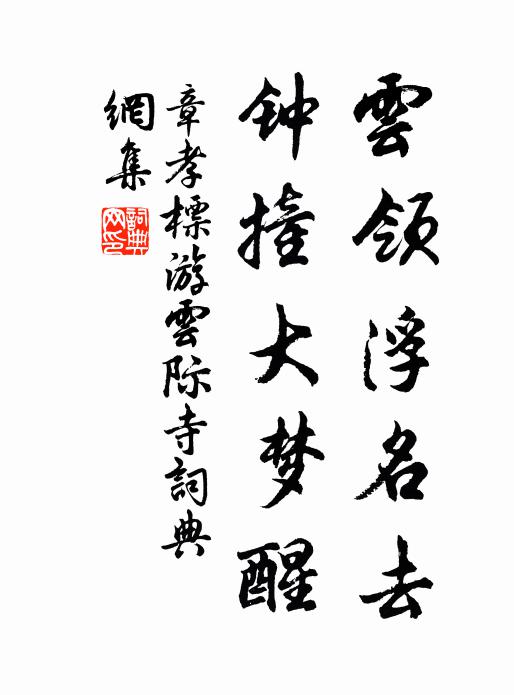 雲領浮名去
钟撞大梦醒
章孝標游雲际寺詞典
網集
詞典网印